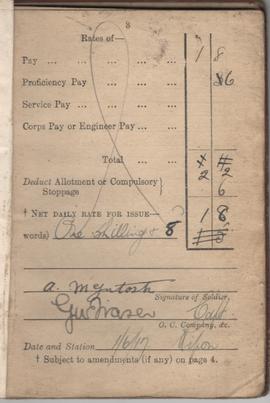 3
Rates of—
Pay ... ... ... ... 1 8
Proficiency Pay ... ... 6
Service Pay ... ... ...
Corps Pay or Engineer Pay ... ...
Total ... 2 2
Deduct Allotment or Compulsory Stoppage } 6
† NET DAILY RATE FOR ISSUE— 1 8
words) One shilling & 8
A. McIntosh
Signature of Soldier.
Capt.
O. C. Company, &c.
Date and Station 1/6/17 Ripon
† Subject to amendments (if any) on page 4.